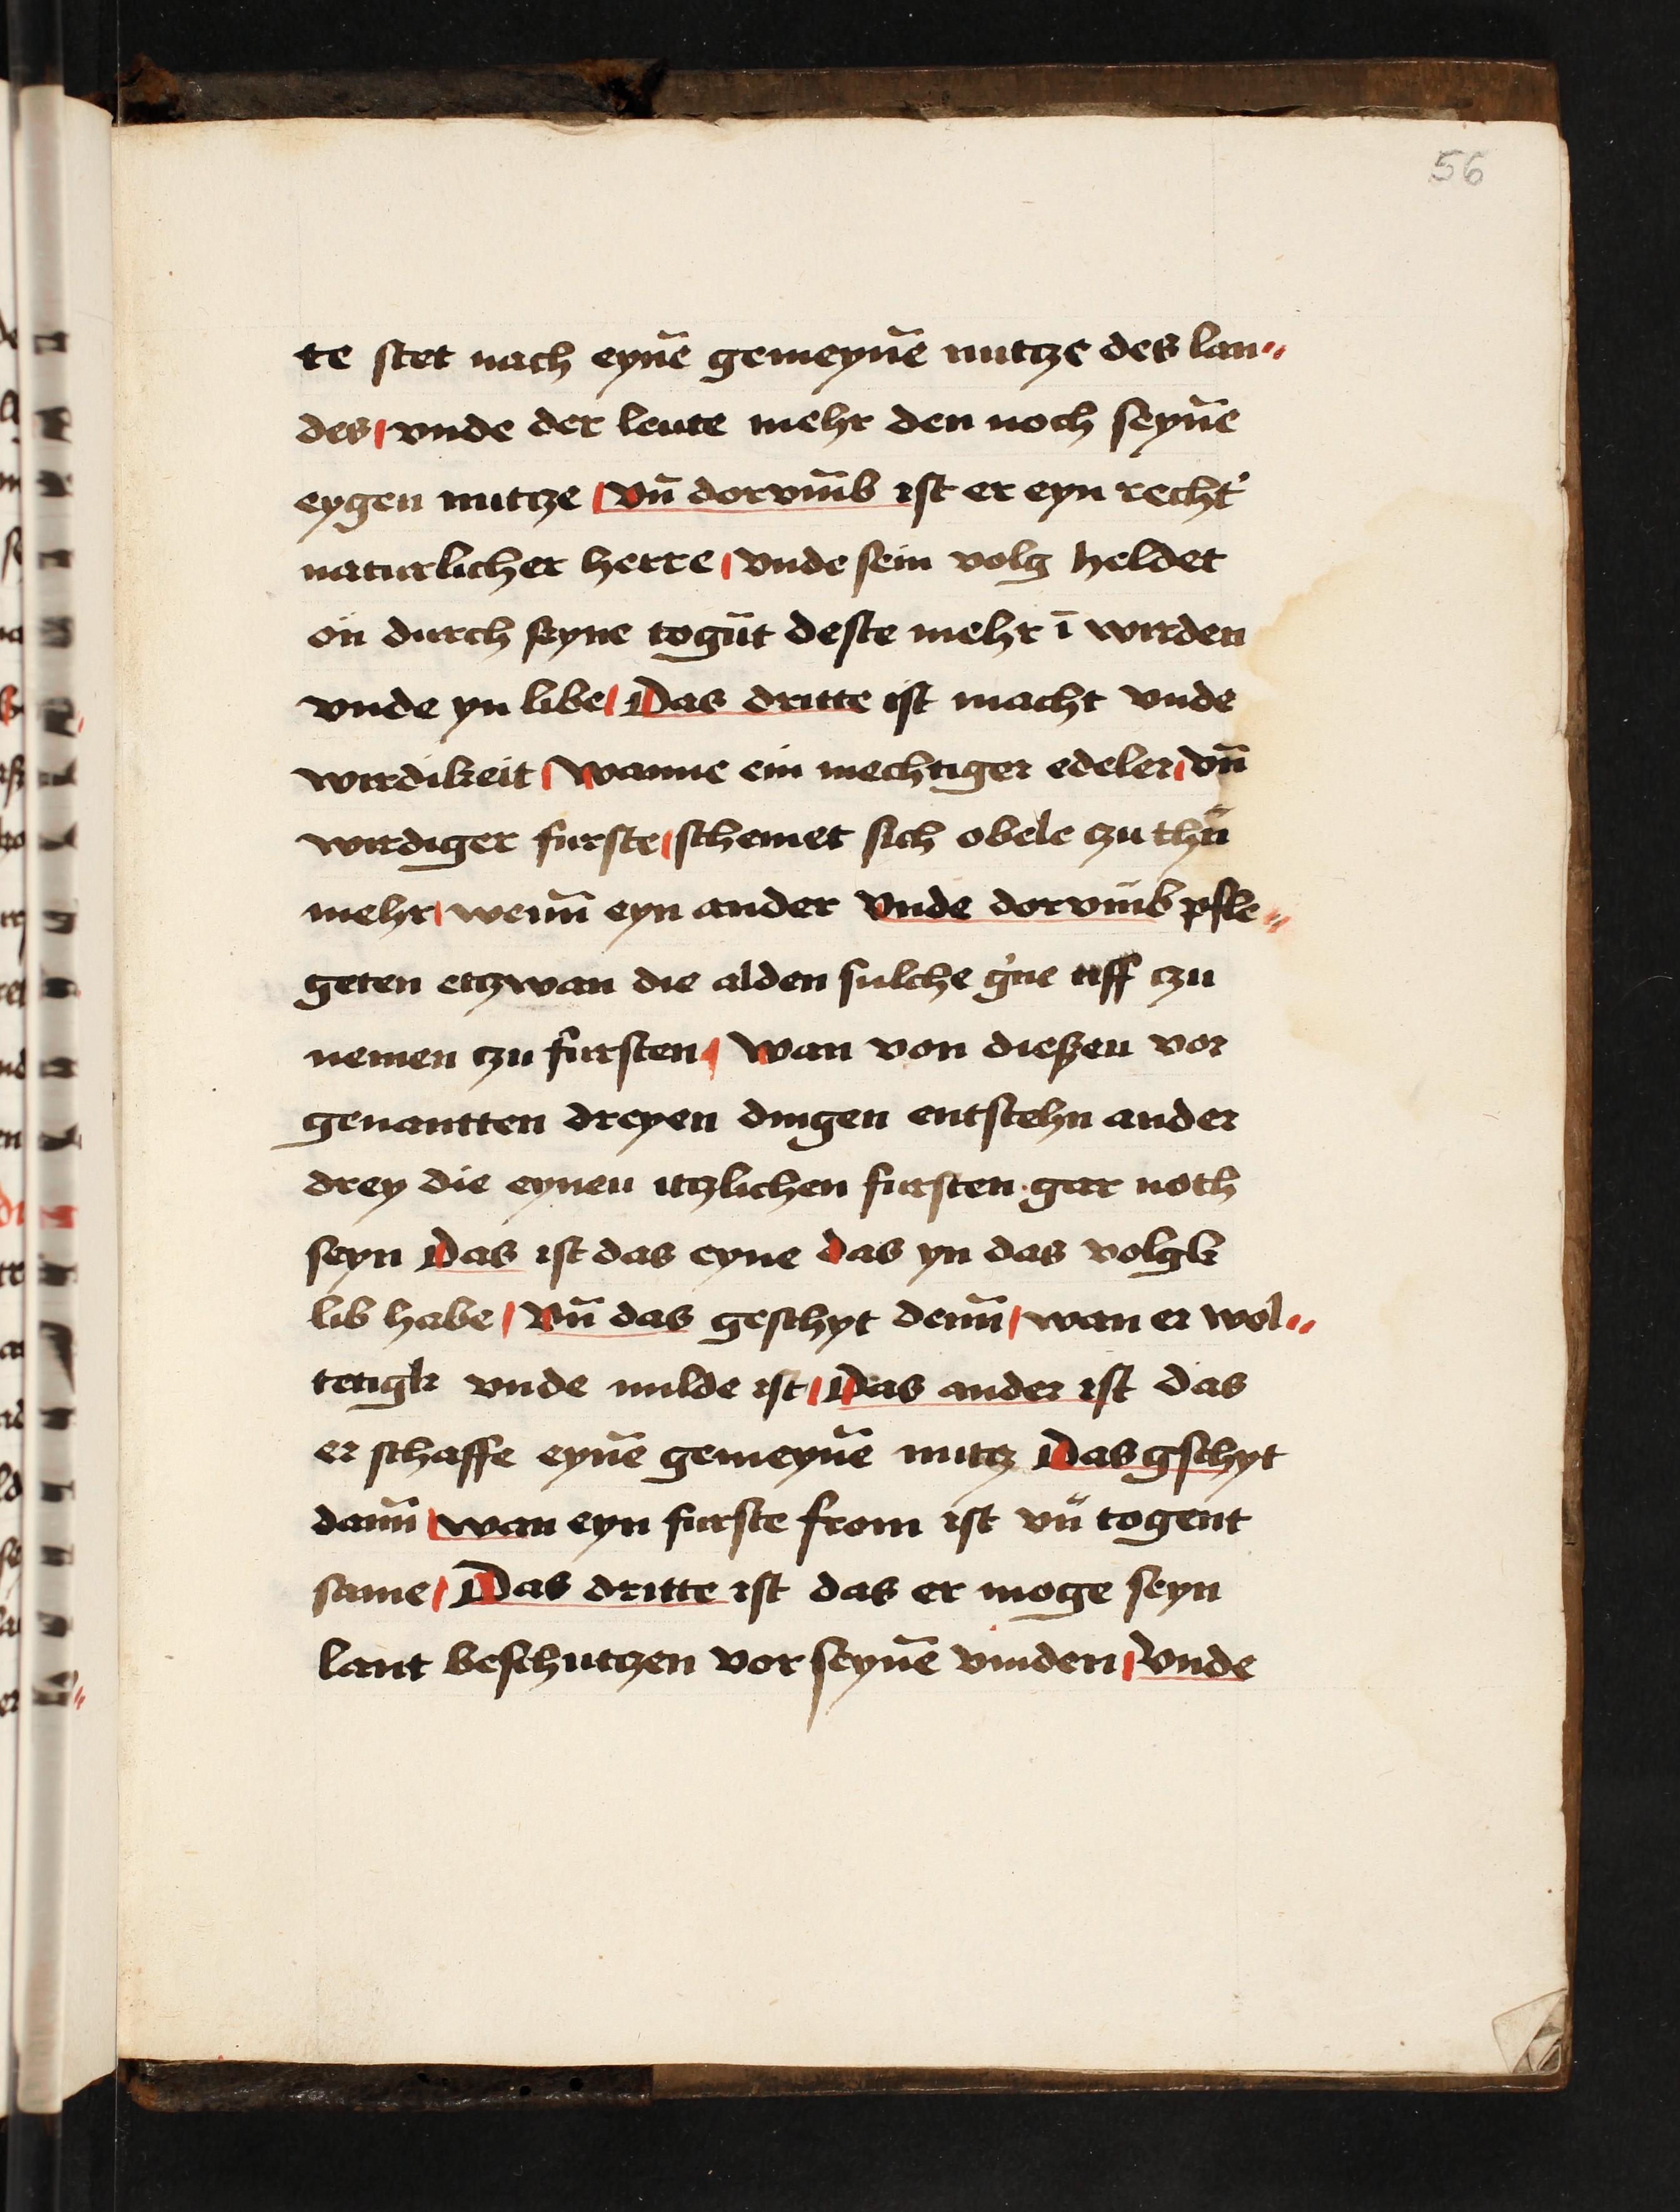 56
te stet nach eynē gemeynē nutcze des lan〃
des | vnde der leute mehr den noch seynē
eygen nutcze | Vn̄ dorvm̄b ist er eyn recht'
naturlicher herre | Vnde sein volg heldet
ön durch seyne togūt deste mehr ī wirden
vnde yn libe | Das dritte ist macht vnde
wirdikeit | Wanne ein mechtiger edeler | vn̄
wirdiger furste | schemet sich obele czu thū
mehr | wenn̄ eyn ander Vnde dorvm̄b pfle〃
geten etczwan die alden sulche g'ne uff czu
nemen czu fursten | Wan von dießen vor
genantten dreyen dingen entstehn ander
drey die eynen itczlichen fursten gar noth
seyn Das ist das eyne das yn das volgk
lib habe | Vn̄ das geschyt denn̄ | wan er wol〃
tetigk vnde milde ist | Das ander ist das
er schaffe eynē gemeynē nutcz Das gschyt
dann̄ | wan eyn furste from ist vn̄ togent
same | Das dritte ist das er moge seyn
lant beschutczen vor seynē vinden | Vnde